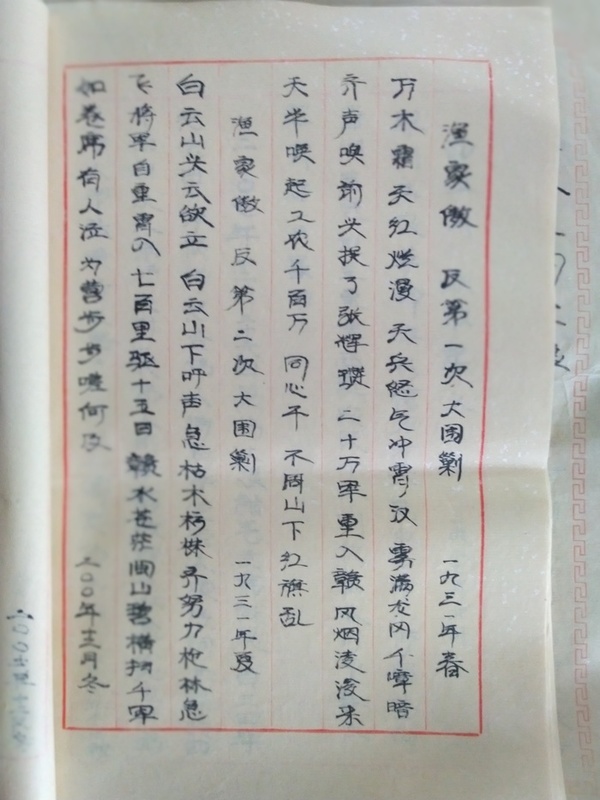 渔家傲 反第一次大围剿 一九三一年春
万木霜天红烂漫 天兵怒气冲霄汉 雾满龙冈千嶂暗
齐声唤 前头捉了张辉瓒 二十万军重入赣 风烟滚滚来
天半 唤起工农千百万 同心干 不周山下红旗乱
渔家傲 反第二次大围剿 一九三一年夏
白云山头云欲立 白云山下呼声急 枯木朽株齐努力 枪林急
飞将军自重霄入 七百里驱十五日 赣水苍茫闽山碧 横扫千军
如卷席 有人泣 为营步步嗟何及 二〇〇年十二月冬